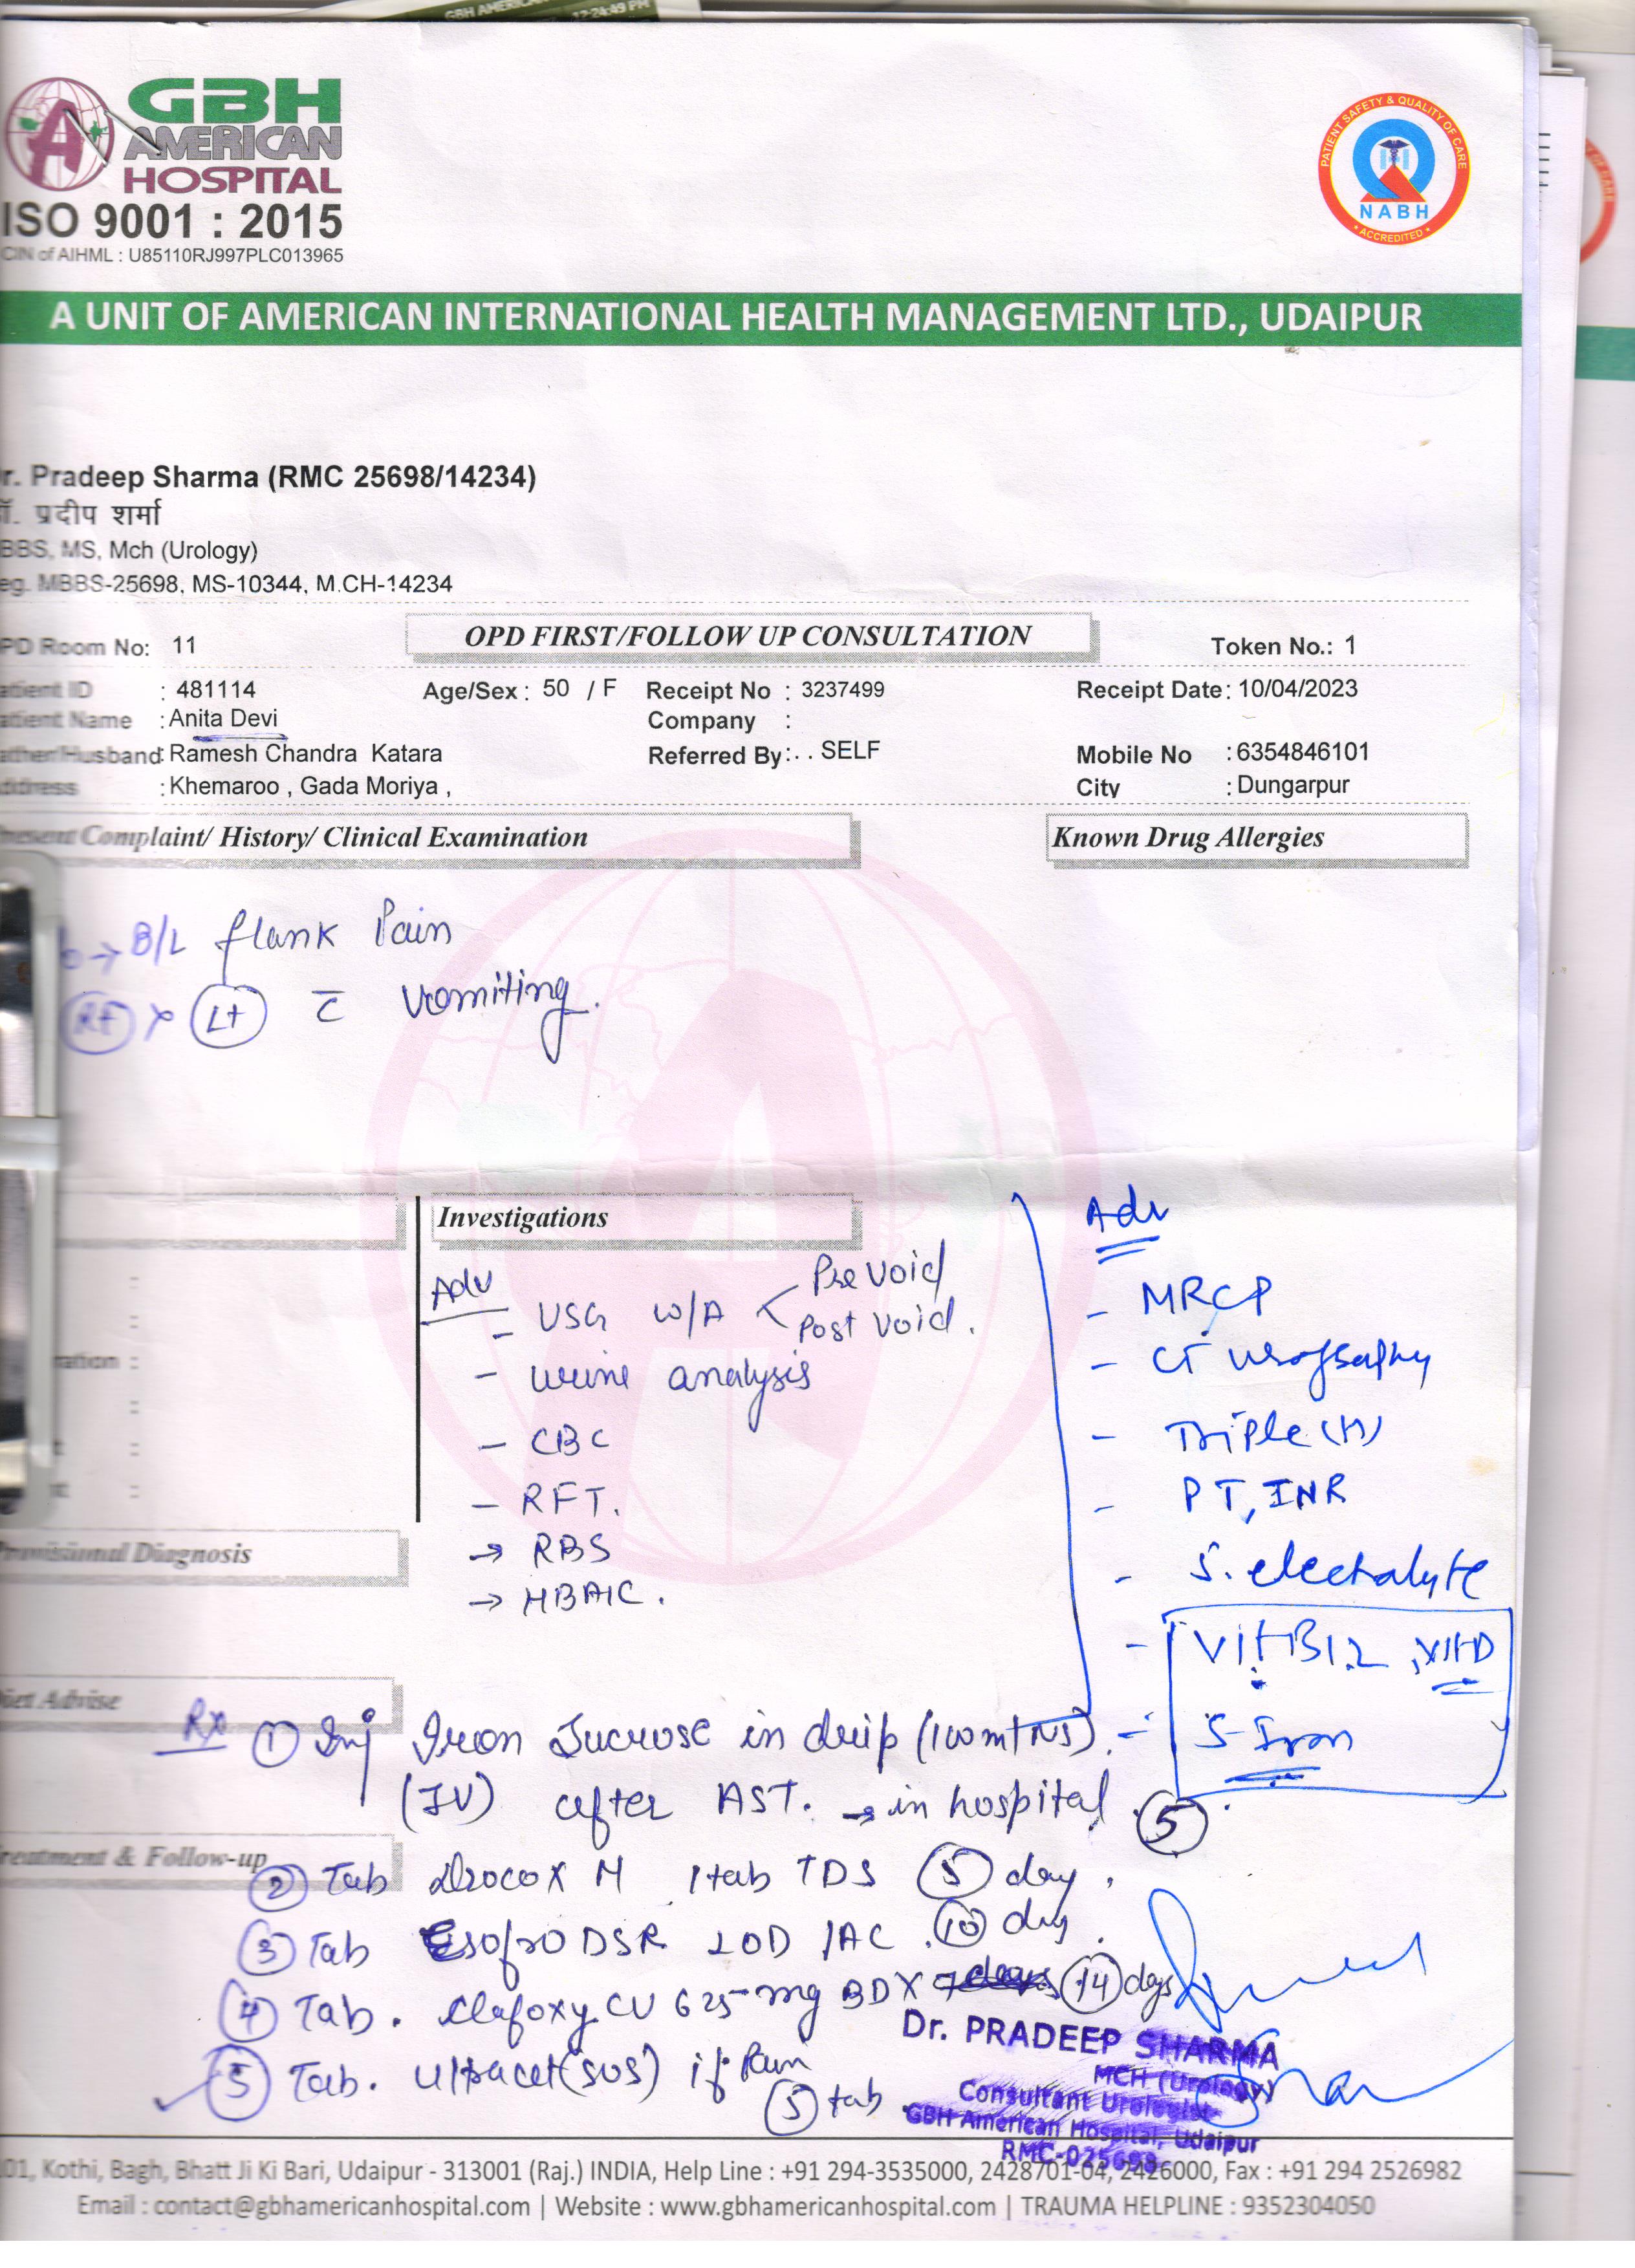 GBH AMERICAN
12:24:49 PM
GBH
AMERICAN
HOSPITAL
ISO 9001 : 2015
CIN of AIHML : U85110RJ997PLC013965
PATIENT SAFETY & QUALITY OF CARE
NABH
ACCREDITED
A UNIT OF AMERICAN INTERNATIONAL HEALTH MANAGEMENT LTD., UDAIPUR
r. Pradeep Sharma (RMC 25698/14234)
ॉ. प्रदीप शर्मा
BBS, MS, Mch (Urology)
eg. MBBS-25698, MS-10344, M.CH-14234
PD Room No: 11 OPD FIRST/FOLLOW UP CONSULTATION Token No.: 1
atient ID : 481114 Age/Sex : 50 / F Receipt No : 3237499 Receipt Date : 10/04/2023
atient Name : Anita Devi Company :
ather/Husband : Ramesh Chandra Katara Referred By : . . SELF Mobile No : 6354846101
ddress : Khemaroo , Gada Moriya , City : Dungarpur
resent Complaint/ History/ Clinical Examination Known Drug Allergies
→ B/L flank Pain
Rt > Lt c̄ vomiting.
Investigations
Adv
- USG W/A < Pre void
Post void.
- urine analysis
- CBC
- RFT.
→ RBS
→ HBA1C.
Adv
- MRCP
- CT urography
- Triple (H)
- PT, INR
- S. electrolyte
- Vit B12, Vit D
- S-Iron
ration :
Provisional Diagnosis
Diet Advise
Rx ① Inj Iron Sucrose in drip (100ml NS).
(IV) after AST. → in hospital. ⑤
Treatment & Follow-up
② Tab Drocox M 1tab TDS ⑤ day.
③ Tab Esofro DSR 1OD 1AC. ⑩ day.
④ Tab. Clafoxy CV 625 mg BD X 7 days ⑭ days
⑤ Tab. Ultracet (SOS) if Pain
⑤ tab
Dr. PRADEEP SHARMA
MCH (Urology)
Consultant Urologist
GBH American Hospital, Udaipur
RMC-025698
01, Kothi, Bagh, Bhatt Ji Ki Bari, Udaipur - 313001 (Raj.) INDIA, Help Line : +91 294-3535000, 2428701-04, 2426000, Fax : +91 294 2526982
Email : contact@gbhamericanhospital.com | Website : www.gbhamericanhospital.com | TRAUMA HELPLINE : 9352304050